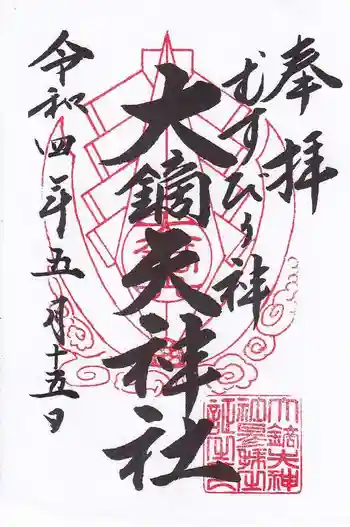 奉拝
むすびの神
大鏑矢神社
令和四年五月十五日
大鏑矢神